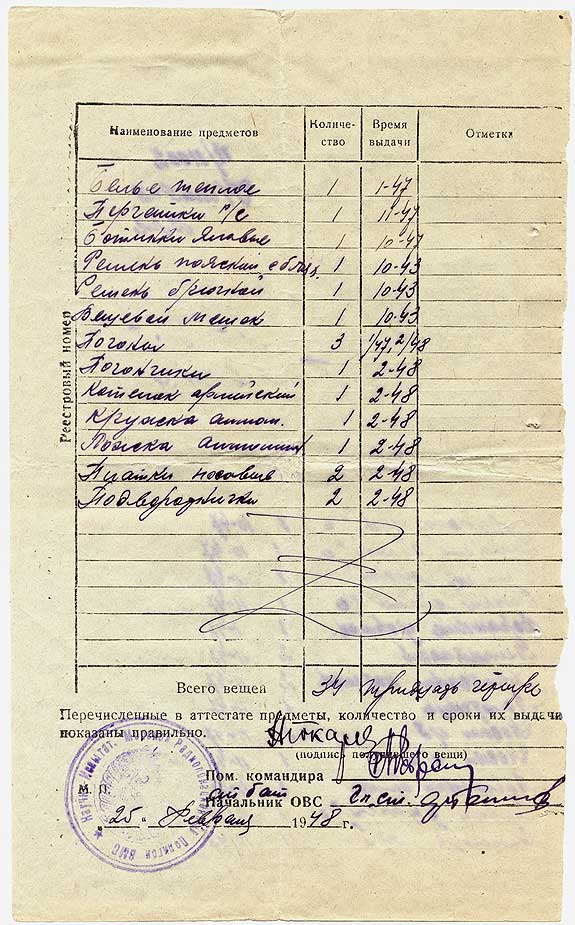 Наименование предметов Количе-ство Время выдачи Отметка
Реестровый номер
Белье теплое 1 1-47
Перчатки р/с 1 11-47
Ботинки яловые 1 10-47
Ремень поясной с блях. 1 10-43
Ремень брючной 1 10-43
Вещевой мешок 1 10-43
Погоны 3 1/47, 2/48
Погончики 1 2-48
Котелок армейский 1 2-48
Кружка 1 2-48
Ложка 1 2-48
Платки носовые 2 2-48
Подворотнички 2 2-48
Всего вещей 34 тридцать четыре
Перечисленные в аттестате предметы, количество и сроки их выдачи
показаны правильно.
(подпись получившего вещи)
Пом. командира
М. П.
Начальник ОВС
25 - Февраля 1948 г.
Полигон ВМС